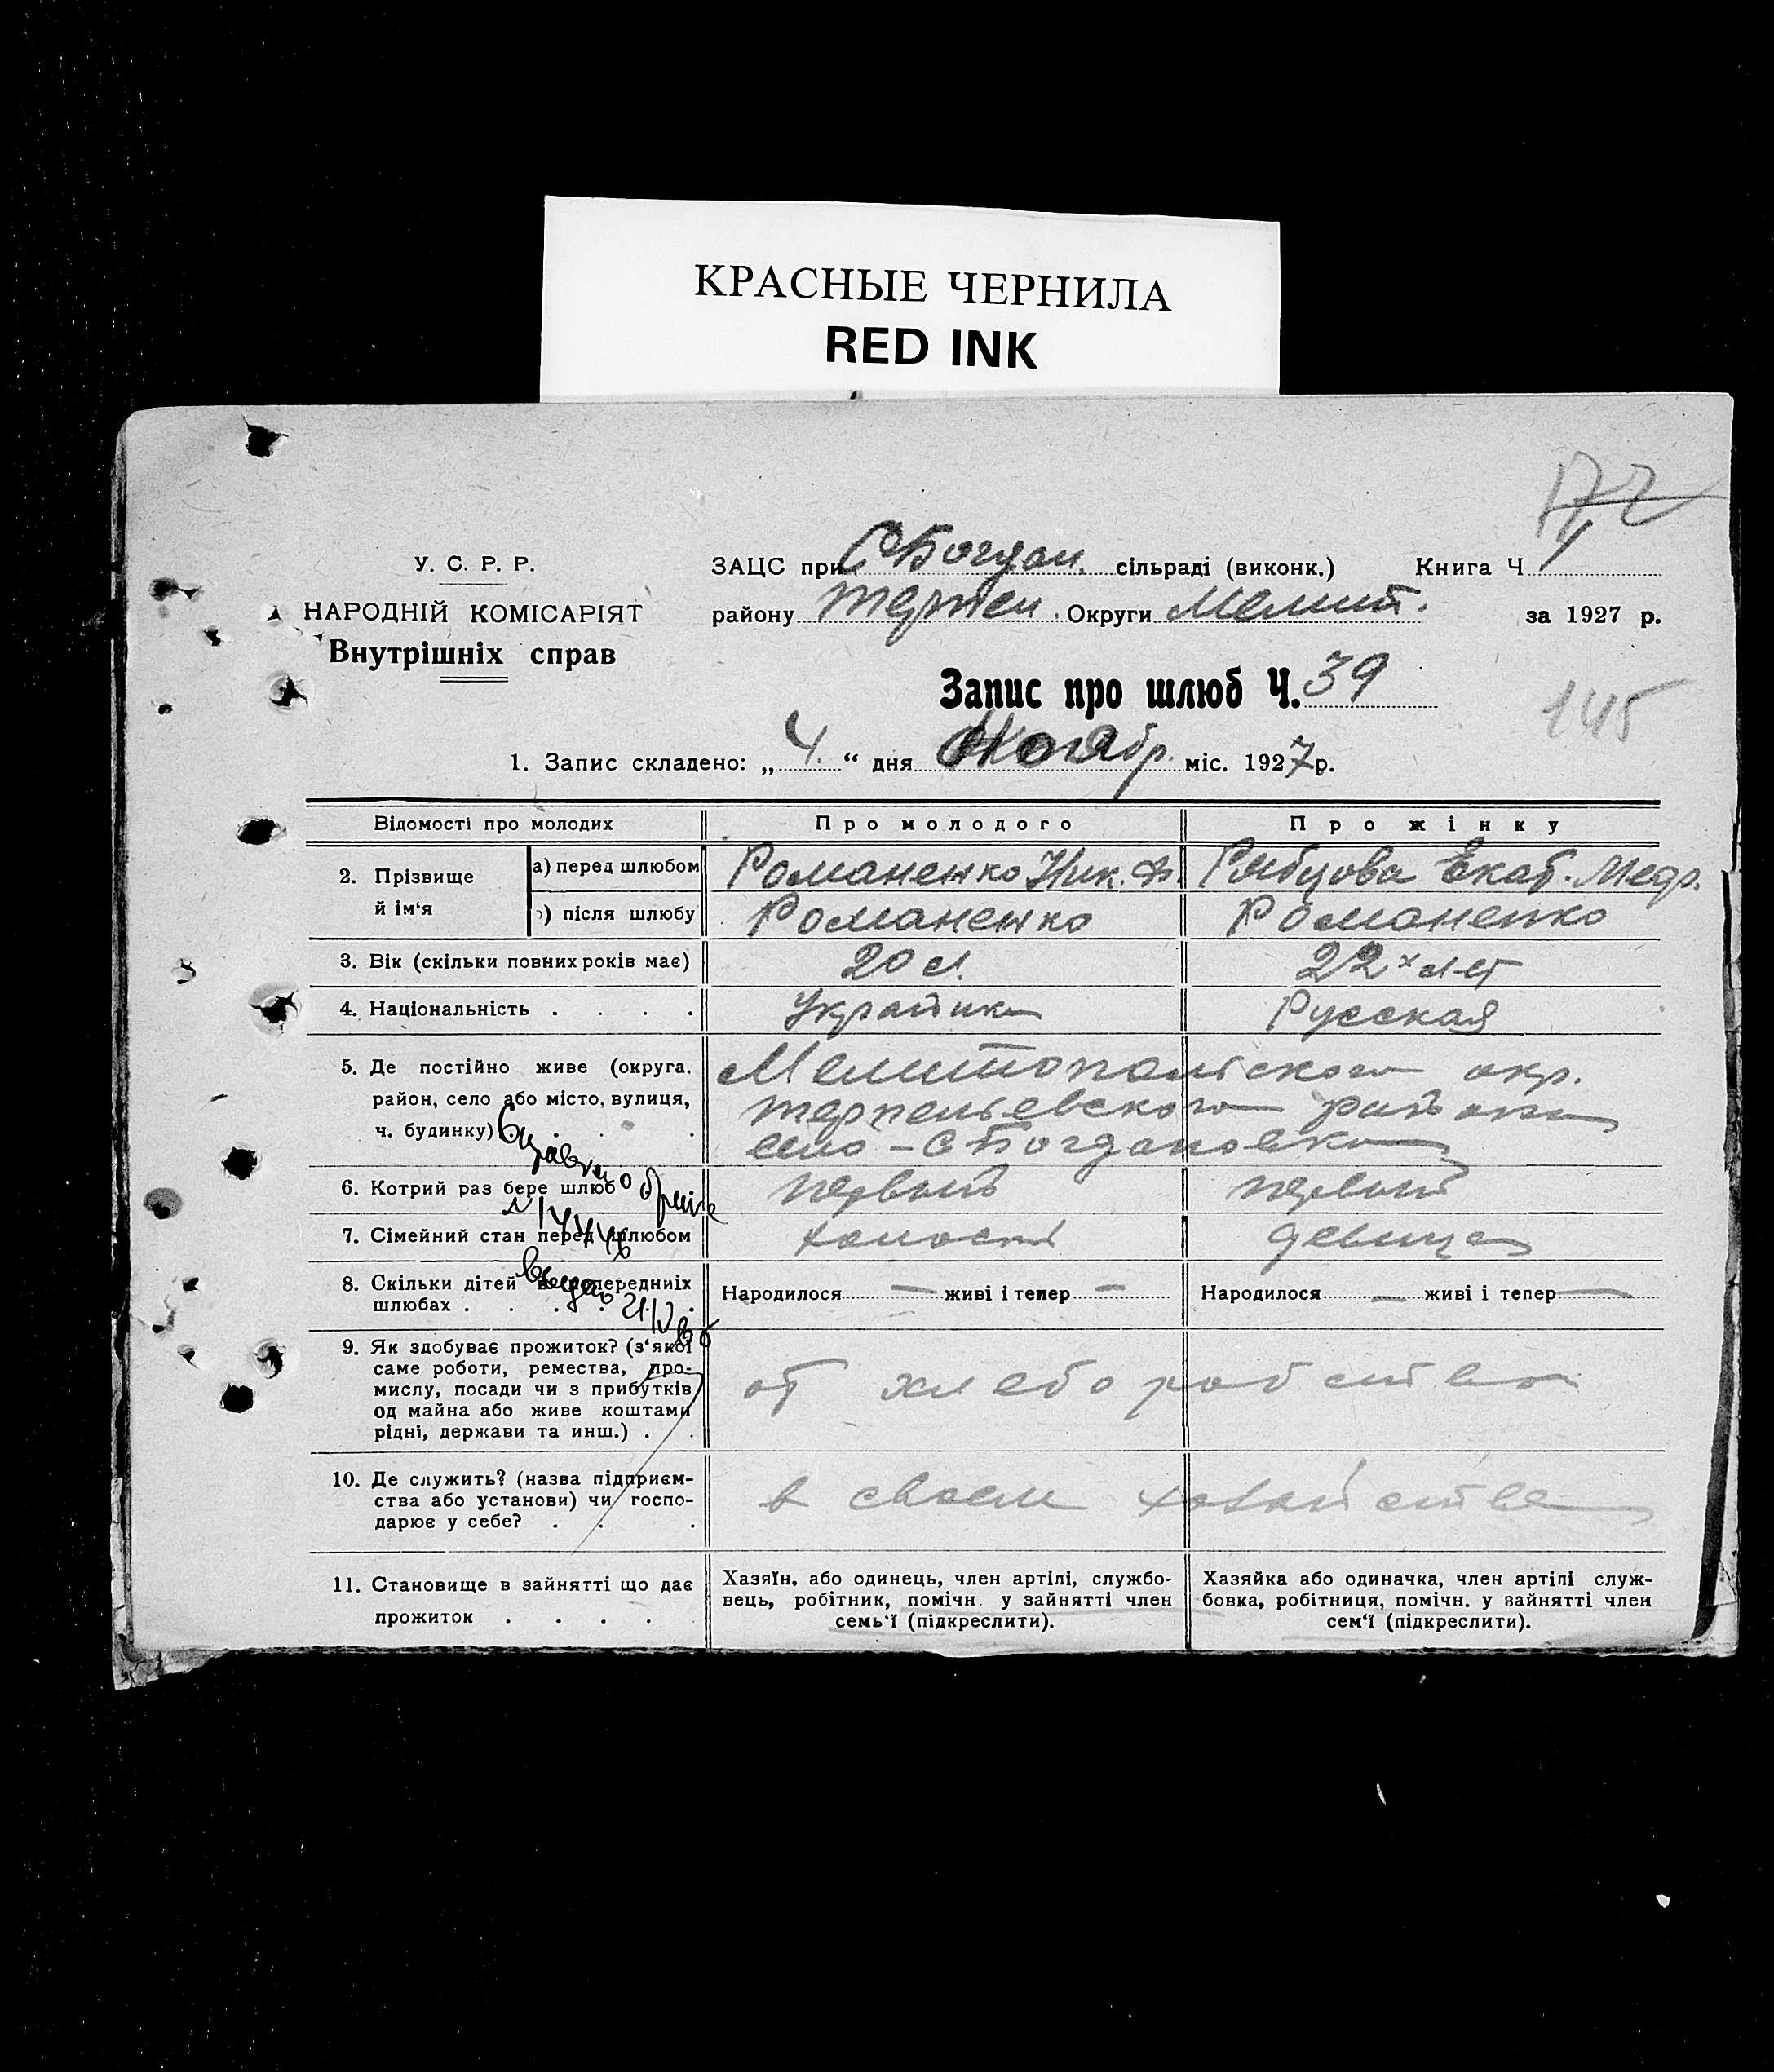 КРАСНЫЕ ЧЕРНИЛА
RED INK
У. С. Р. Р.
НАРОДНІЙ КОМІСАРІЯТ
Внутрішніх справ
ЗАЦС при С Богдан. сільраді (виконк.) Книга Ч 1
району Терпен. Округи Мелит. за 1927 р.
Запис про шлюб Ч. 39
145
1. Запис складено: „ 4. “ дня Ноябр. міс. 1927 р.
Відомості про молодих Про молодого Про жінку
2. Прізвище й ім‘я
а) перед шлюбом Романенко Ник. Рибцова Екат.
) після шлюбу Романенко Романенко
3. Вік (скільки повних років має) 20 л. 22х лет
4. Національність . . . . Украинец Русская
5. Де постійно живе (округа, Мелитопольского окр.
район, село або місто, вулиця, Терпеньевского района
ч. будинку) . . . село - С Богдановка
6. Котрий раз бере шлюб первый первый
7. Сімейний стан перед шлюбом холост девица
8. Скільки дітей в попередниіх Народилося — живі і тепер — Народилося — живі і тепер —
шлюбах . . . . .
9. Як здобуває прожиток? (з‘якої
саме роботи, ремества, про-
мислу, посади чи з прибутків от хлеборобства
од майна або живе коштами
рідні, держави та инш.) . .
10. Де служить? (назва підприєм-
ства або установи) чи госпо- в своем хозяйстве
дарює у себе? . . .
11. Становище в зайнятті що дає
прожиток . . . . .
Хазяїн, або одинець, член артілі, службо-
вець, робітник, помічн. у зайнятті член
семь‘ї (підкреслити).
Хазяйка або одиначка, член артілі служ-
бовка, робітниця, помічн. у зайнятті член
сем‘ї (підкреслити).